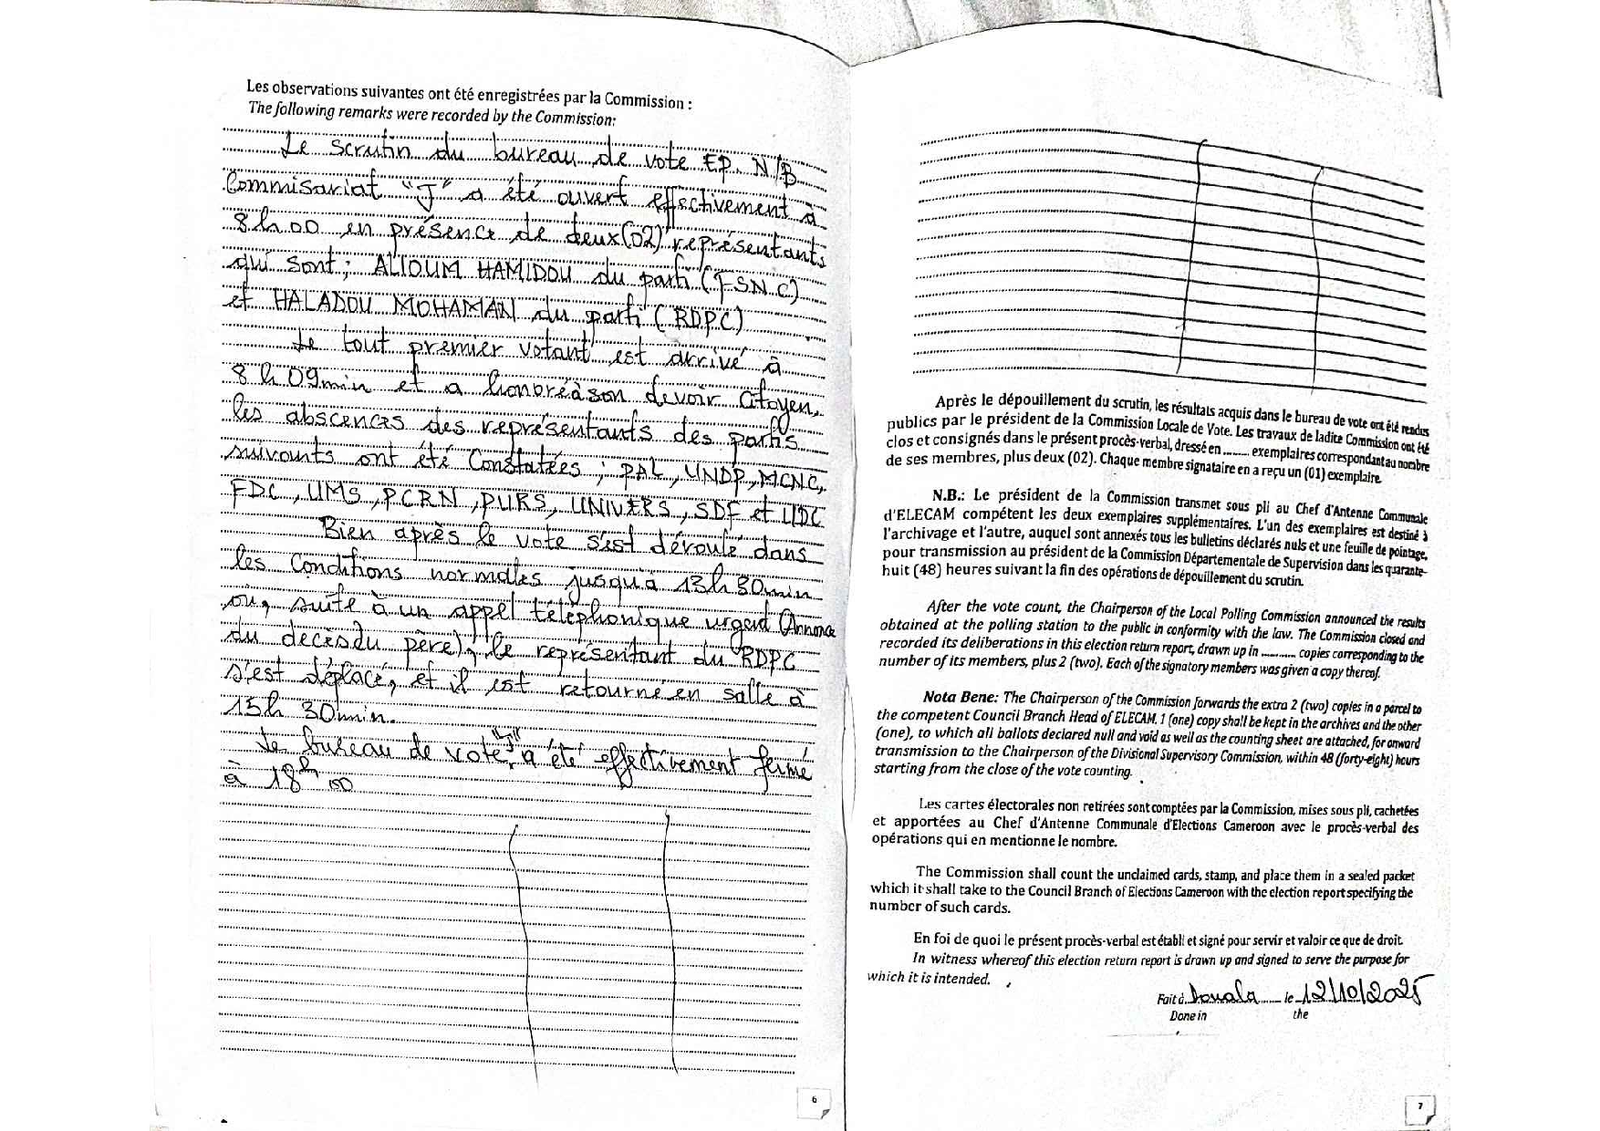 Les observations suivantes ont été enregistrées par la Commission :
The following remarks were recorded by the Commission:
Le scrutin du bureau de vote EP. N/B
Commisariat "J" a été ouvert effectivement à
8h00 en présence de deux(02) représentants
qui sont; ALIOUM HAMIDOU du parti (FSNC)
et HALADOU MOHAMAN du parti (RDPC)
Le tout premier votant est arrivé à
8h09min et a honoré à son devoir citoyen,
les abscences des représentants des partis
suivants ont été constatées ; PAL, UNDP, MCNC,
FDC, UMS, PCRN, PURS, UNIVERS, SDF et UDC
Bien après le vote s'est déroulé dans
les conditions normales jusqu'à 13h30min
où, suite à un appel téléphonique urgent (Annonce
du decès du père), le représentant du RDPC
s'est déplacé, et il est retourné en salle à
15h 30min.
Le bureau de vote "J" a été effectivement fermé
à 18h00
6
Après le dépouillement du scrutin, les résultats acquis dans le bureau de vote ont été rendus
publics par le président de la Commission Locale de Vote. Les travaux de ladite Commission ont été
clos et consignés dans le présent procès-verbal, dressé en ........ exemplaires correspondant au nombre
de ses membres, plus deux (02). Chaque membre signataire en a reçu un (01) exemplaire.
N.B.: Le président de la Commission transmet sous pli au Chef d'Antenne Communale
d'ELECAM compétent les deux exemplaires supplémentaires. L'un des exemplaires est destiné à
l'archivage et l'autre, auquel sont annexés tous les bulletins déclarés nuls et une feuille de pointage,
pour transmission au président de la Commission Départementale de Supervision dans les quarante-
huit (48) heures suivant la fin des opérations de dépouillement du scrutin.
After the vote count, the Chairperson of the Local Polling Commission announced the results
obtained at the polling station to the public in conformity with the law. The Commission closed and
recorded its deliberations in this election return report, drawn up in .......... copies corresponding to the
number of its members, plus 2 (two). Each of the signatory members was given a copy thereof.
Nota Bene: The Chairperson of the Commission forwards the extra 2 (two) copies in a parcel to
the competent Council Branch Head of ELECAM. 1 (one) copy shall be kept in the archives and the other
(one), to which all ballots declared null and void as well as the counting sheet are attached, for onward
transmission to the Chairperson of the Divisional Supervisory Commission, within 48 (forty-eight) hours
starting from the close of the vote counting.
Les cartes électorales non retirées sont comptées par la Commission, mises sous pli, cachetées
et apportées au Chef d'Antenne Communale d'Elections Cameroon avec le procès-verbal des
opérations qui en mentionne le nombre.
The Commission shall count the unclaimed cards, stamp, and place them in a sealed packet
which it shall take to the Council Branch of Elections Cameroon with the election report specifying the
number of such cards.
En foi de quoi le présent procès-verbal est établi et signé pour servir et valoir ce que de droit.
In witness whereof this election return report is drawn up and signed to serve the purpose for
which it is intended.
Fait à Douala le 12/10/2025
Done in the
7